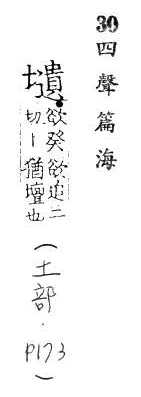 30 四聲篇海
壝 欲癸欲追二
切丨猶壇也
(土部.P173)